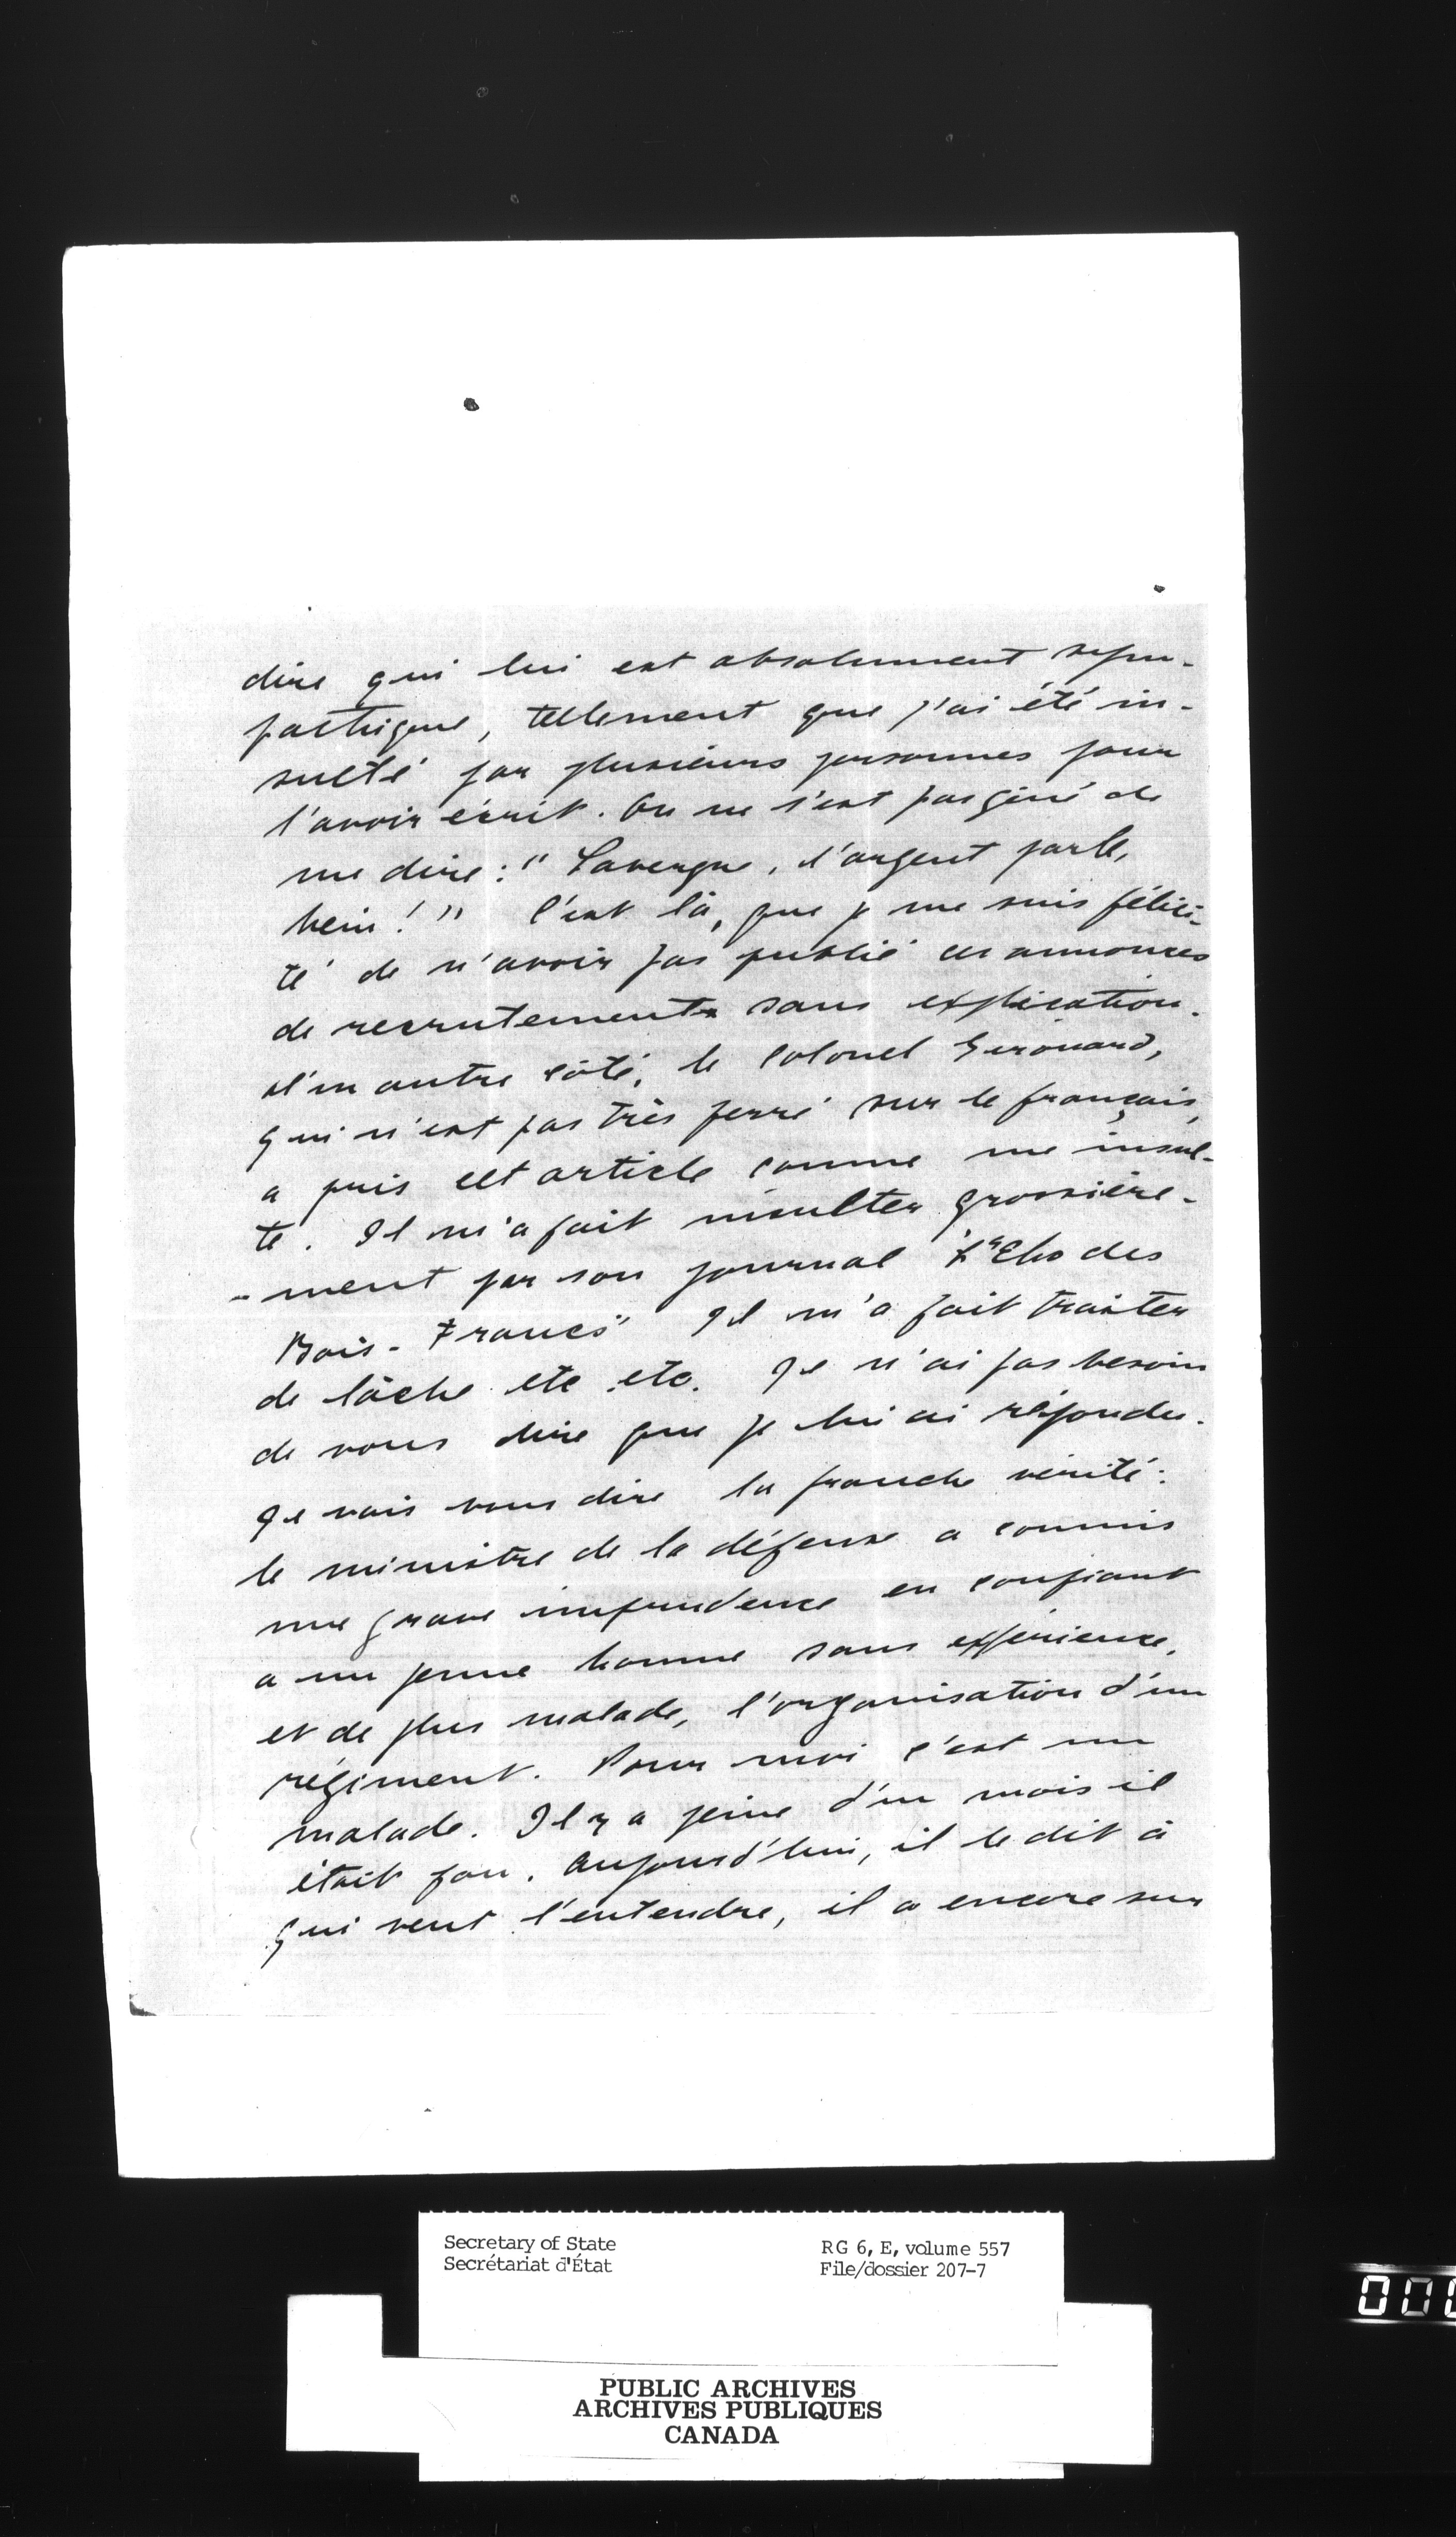 dire qui lui est absolument sym-
pathique, tellement que j'ai été in-
sulté par plusieurs personnes pour
l'avoir écrit. On ne s'est pas gêné de
me dire : " Lavergne, l'argent parle,
hein ! " C'est là, que je me suis félici-
té de n'avoir pas publié ces annonces
de recrutement sans explication.
D'un autre côté, le colonel Girouard,
qui n'est pas très ferré sur le français,
a pris cet article comme une insul-
te. Il m'a fait insulter grossière-
- ment par son journal "L'Echo des
Bois-Francs" Il m'a fait traiter
de lâche etc etc. Je n'ai pas besoin
de vous dire que je lui ai répondu.
Je vais vous dire la franche vérité :
le ministre de la défense a commis
une grave imprudence en confiant
a un jeune homme sans expérience,
et de plus malade, l'organisation d'un
régiment. Pour moi c'est un
malade. Il y a peine d'un mois il
était fou. Aujourd'hui, il le dit à
qui veut l'entendre, il a encore sur
Secretary of State
Secrétariat d'État
RG 6, E, volume 557
File/dossier 207-7
PUBLIC ARCHIVES
ARCHIVES PUBLIQUES
CANADA
000